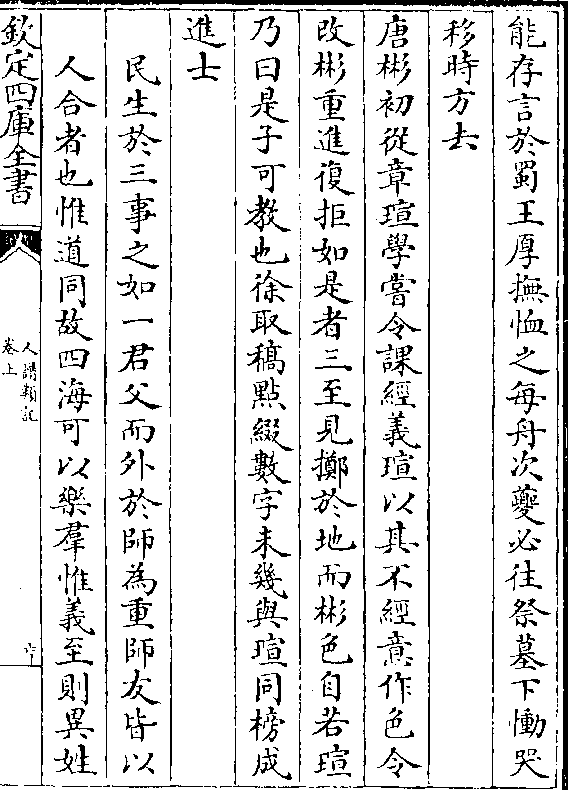 能存言於蜀王厚撫恤之每舟次夔必往祭墓下慟哭
移時方去
唐彬初從章瑄學嘗令課經義瑄以其不經意作色令
改彬重進復拒如是者三至見擲於地而彬色自若瑄
乃曰是子可教也徐取稿點綴數字未幾與瑄同榜成
進士
民生於三事之如一君父而外於師為重師友皆以
人合者也惟道同故四海可以樂羣惟義至則異姓
欽定四庫全書
人譜類記
卷上